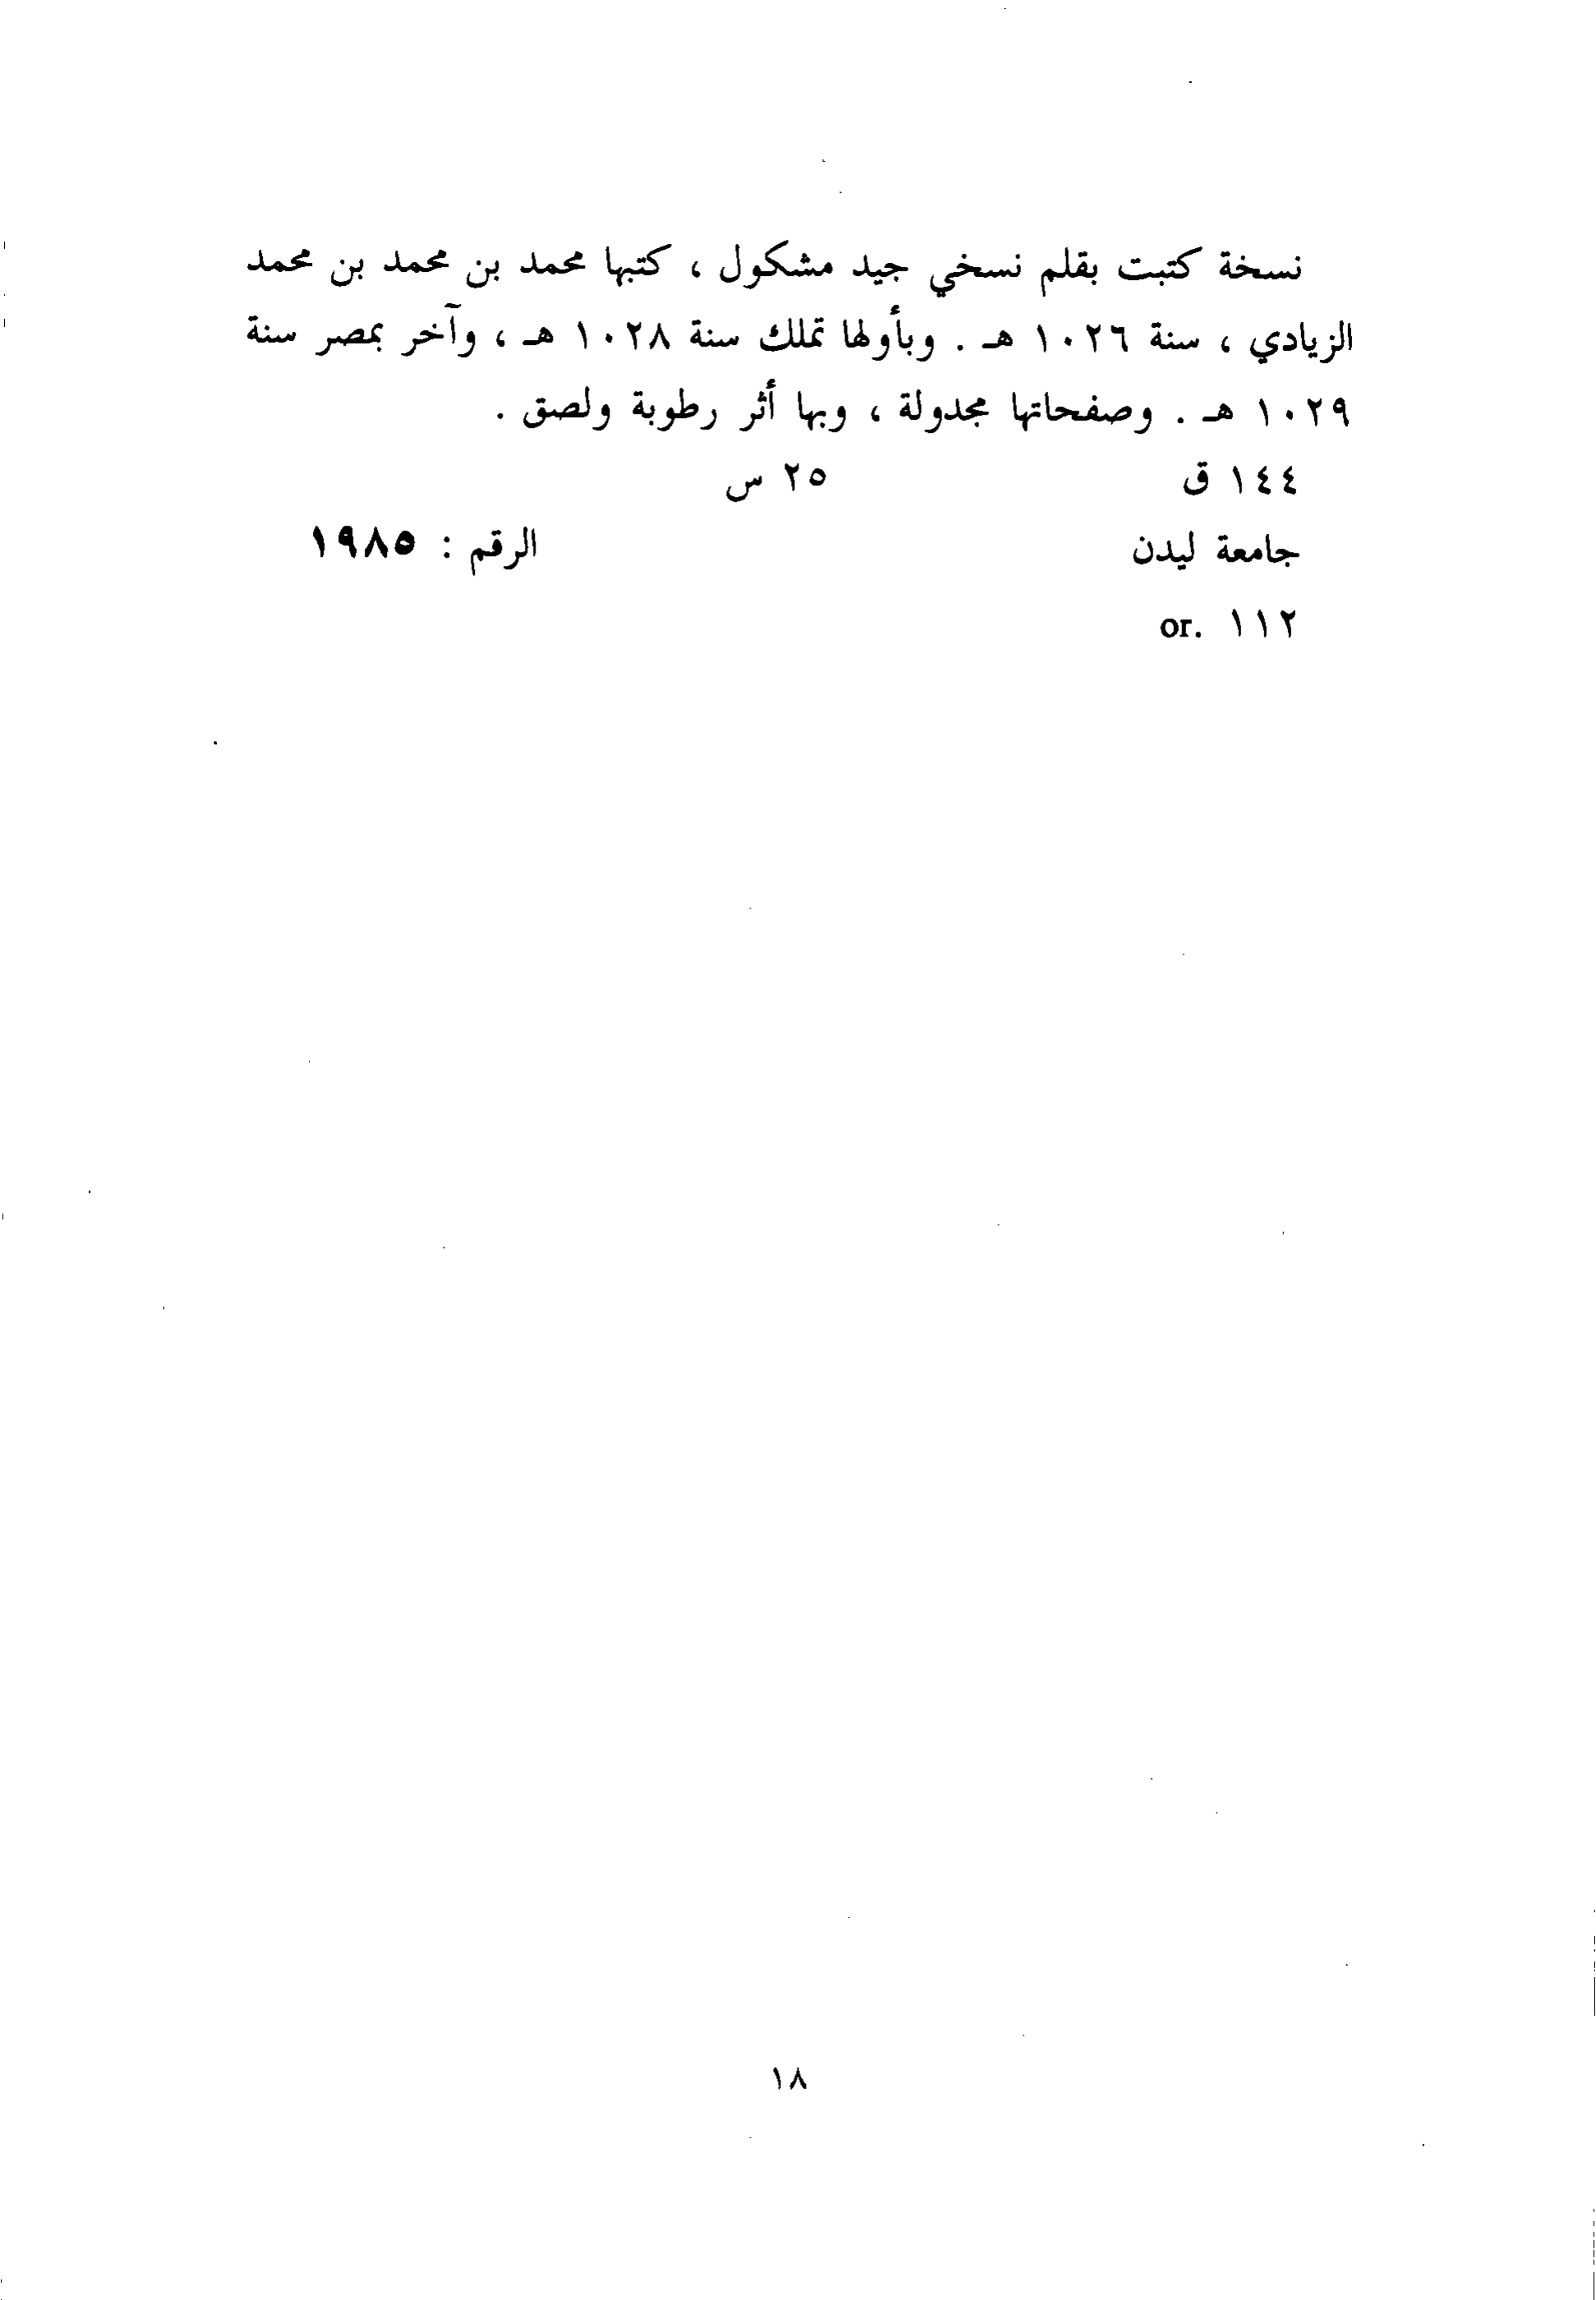 نسخة كتبت بقلم نسخي جيد مشكول ، كتبها محمد بن محمد بن محمد
الزيادي ، سنة ١٠٢٦ هـ . وبأولها تملك سنة ١٠٢٨ هـ ، وآخر بمصر سنة
١٠٢٩ هـ . وصفحاتها مجدولة ، وبها أثر رطوبة ولصق .
١٤٤ ق ٢٥ س
جامعة ليدن الرقم : ١٩٨٥
or. ١١٢
١٨